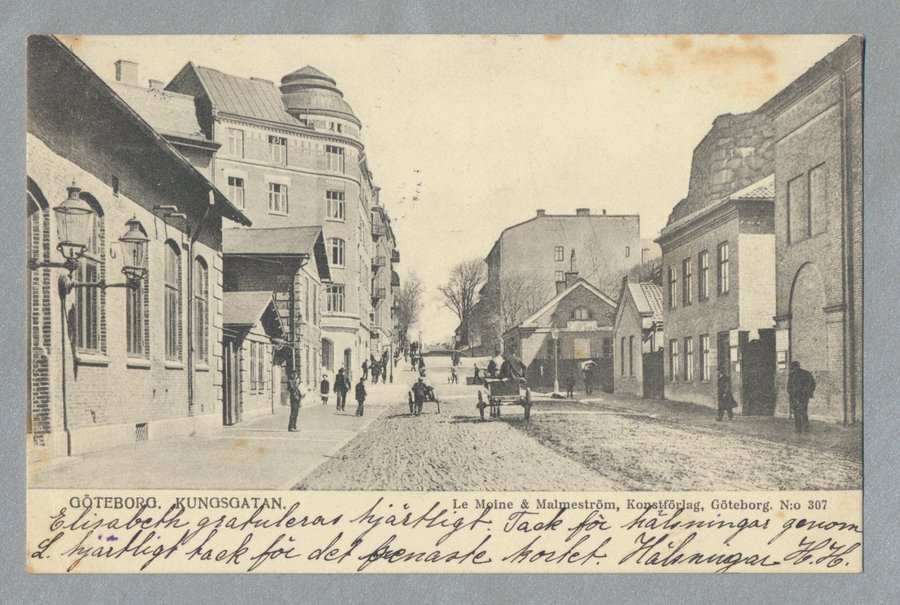 GÖTEBORG. KUNGSGATAN.
Le Moine & Malmeström, Konstförlag, Göteborg. N:o 307
Elisabeth gratuleras hjärtligt. Tack för hälsningar genom
L. hjärtligt tack för det senaste kortet. Hälsningar H.H.